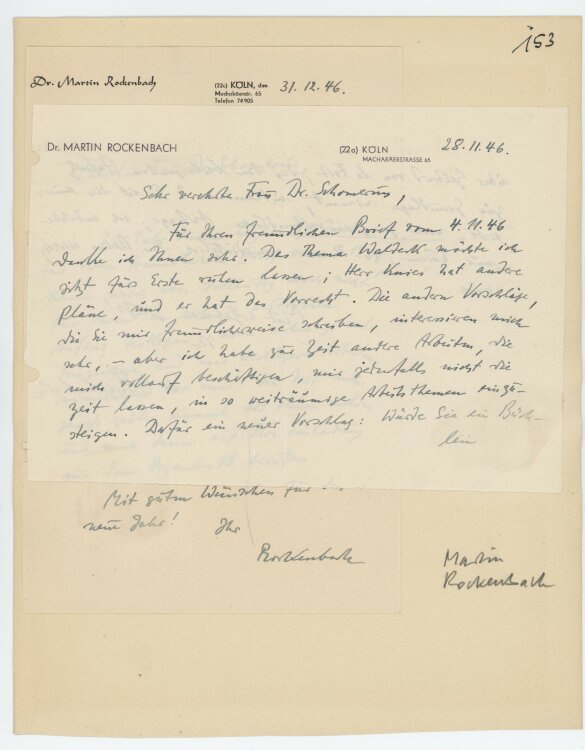 153
Dr. Martin Rockenbach
(22c) KÖLN, den 31.12.46.
Machabäerstr. 65
Telefon 74905
DR. MARTIN ROCKENBACH
(22a) KÖLN 28.11.46.
MACHABÄERSTRASSE 65
Sehr verehrte Frau Dr. Schomerus,
Für Ihren freundlichen Brief vom 4.11.46
danke ich Ihnen sehr. Das Thema Waldeck möchte ich
jetzt fürs Erste ruhen lassen; Herr Knies hat andere
Pläne, und er hat das Vorrecht. Die andern Vorschläge,
die Sie mir freundlicherweise schreiben, interessieren mich
sehr, – aber ich habe zur Zeit andere Arbeiten, die
mich vollauf beschäftigen, mir jedenfalls nicht die
Zeit lassen, in so weiträumige Arbeitsthemen einzu-
steigen. Dafür ein neuer Vorschlag: Würde Sie ein Büch-
lein
Mit guten Wünschen für
neue Jahr! Ihr
Rockenbach
Martin
Rockenbach